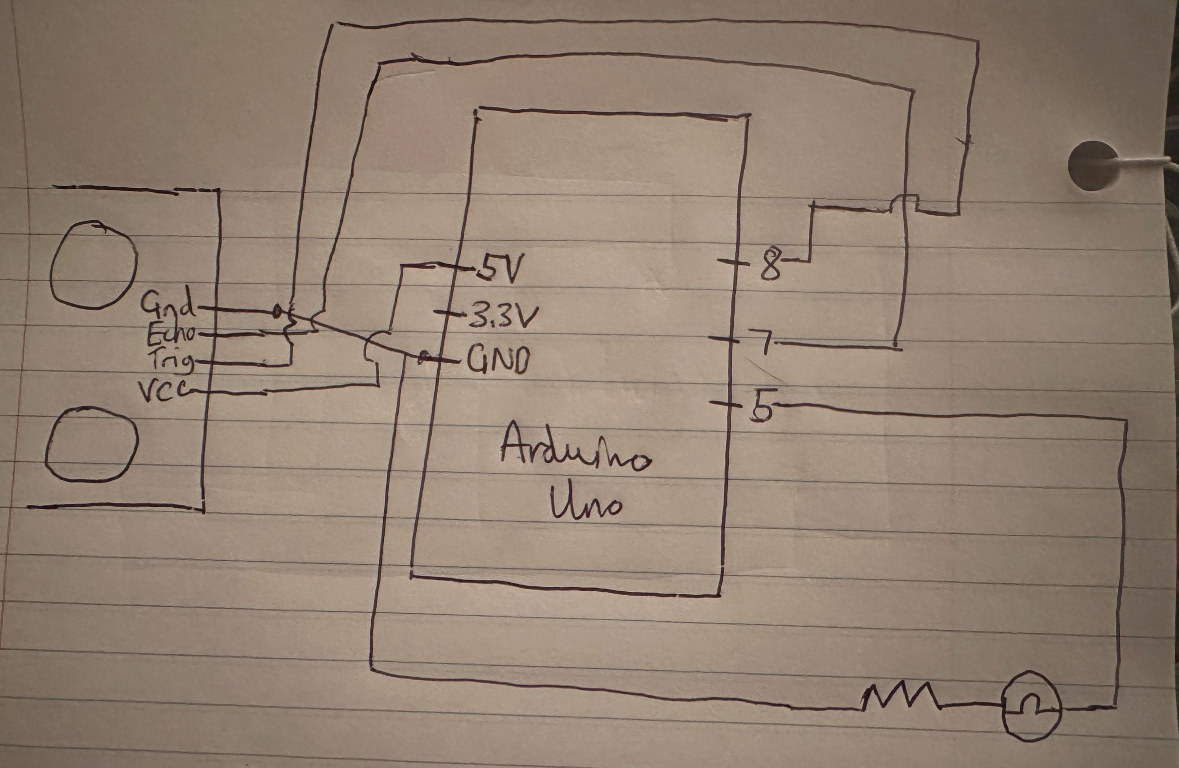 Gnd
Echo
Trig
VCC
5V
3.3V
GND
8
7
5
Arduino
Uno